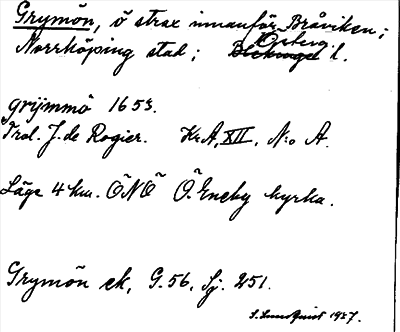 Grymön, ö strax innanför Bråviken;
Norrköping stad; Österg. l.
grijmmö 1653.
Trol. J. de Rogier. KrA, XII, N:o A.
Läge 4 km. ÖNÖ Ö. Eneby kyrka.
Grymön ek, G. 56, Sj. 251.
S. Lundquist 1937.